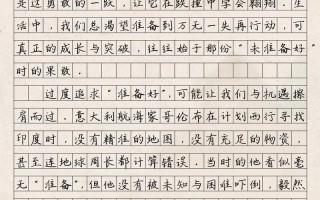 是这勇敢的一跃，让它在跌撞中学会翱翔。生
活中，我们总渴望准备到万无一失再行动，可
真正的成长与突破，往往始于那份“未准备好”
时的果敢。
过度追求“准备好”，可能让我们与机遇擦
肩而过。意大利航海家哥伦布在计划西行寻找
印度时，没有精准的地图，没有充足的物资，
甚至连地球周长都计算错误。当时的他看似毫
无“准备”，但他没有被未知与困难吓倒，毅然